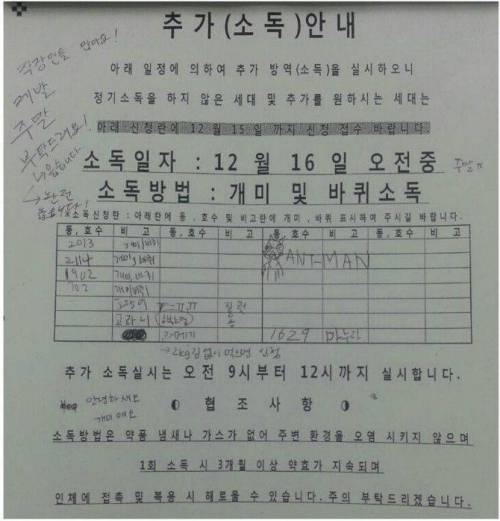 추가(소독)안내
직장인들 많아요!
제발
주말
부탁드려요!
아래 일정에 의하여 추가 방역(소독)을 실시하오니
정기소독을 하지 않은 세대 및 추가를 원하시는 세대는
아래 신청란에 12월 15일까지 신청 접수 바랍니다.
소독일자 : 12월 16일 오전중
소독방법 : 개미 및 바퀴소독
소독신청란 : 아래란에 동, 호수 및 비고란에 개미, 바퀴 표시하여 주시길 바랍니다.
동, 호수 비 고 동, 호수 비 고 동, 호수 비 고
2013 개미/바퀴 ANT-MAN
2114 개미, 바퀴
1902 개미, 바퀴
702 개미/바퀴
고라니
1629 마누라
추가 소독실시는 오전 9시부터 12시까지 실시합니다.
안녕하세요
개미에요
협조사항
소독방법은 약품 냄새나 가스가 없어 주변 환경을 오염 시키지 않으며
1회 소독 시 3개월 이상 약효가 지속되며
인체에 접촉 및 복용 시 해로울 수 있습니다. 주의 부탁드리겠습니다.